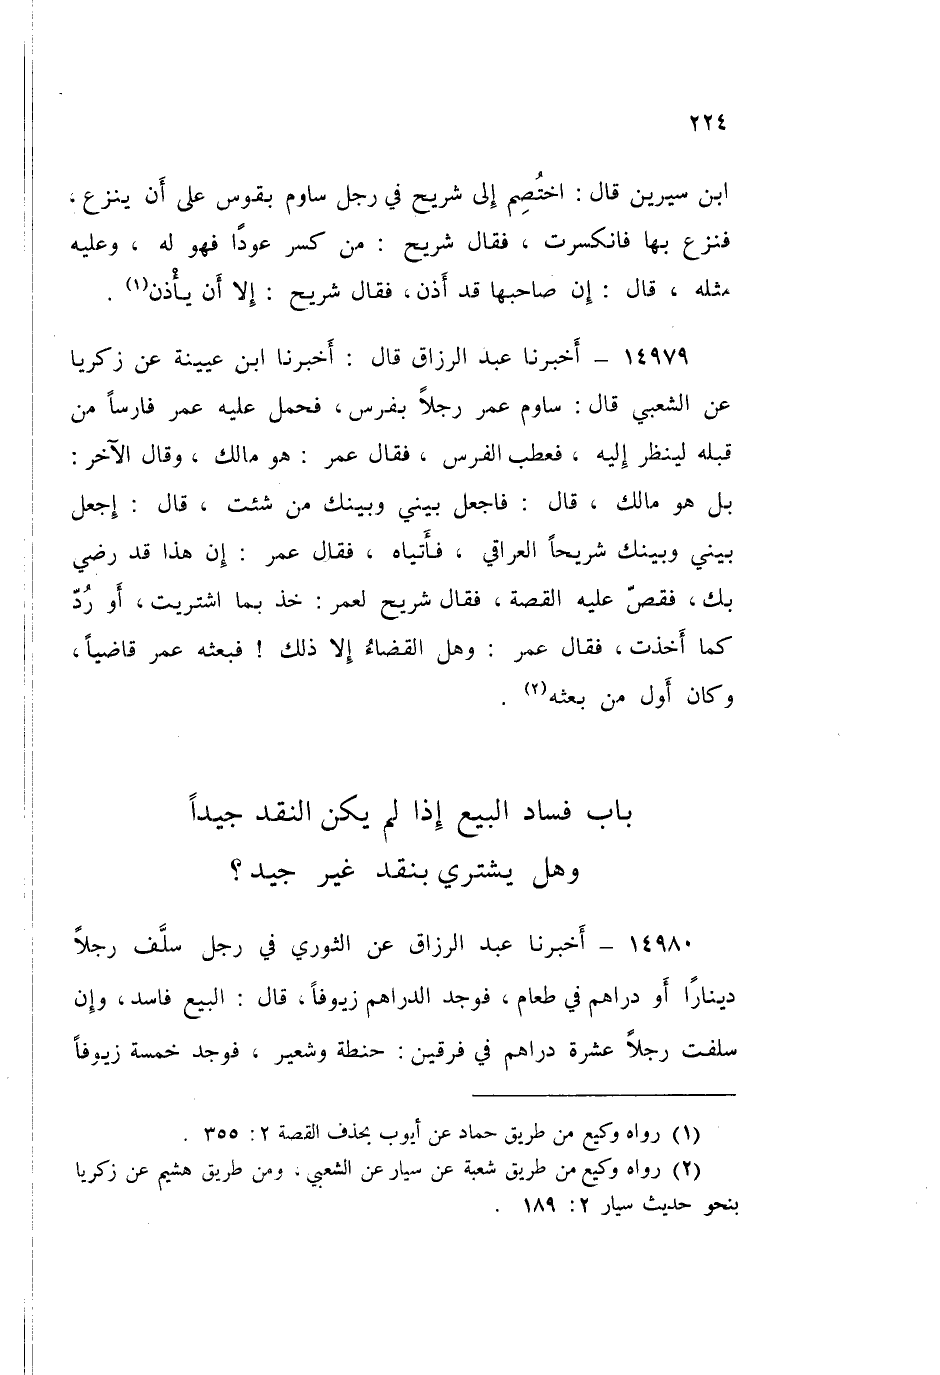 ٢٢٤
ابن سيرين قال : اختُصِم إلى شريح في رجل ساوم بقوس على أن ينزع ،
فنزع بها فانكسرت ، فقال شريح : من كسر عودًا فهو له ، وعليه
مثله ، قال : إن صاحبها قد أذن ، فقال شريح : إلا أن يأْذن(١) .
١٤٩٧٩ – أَخبرنا عبد الرزاق قال : أَخبرنا ابن عيينة عن زكريا
عن الشعبي قال : ساوم عمر رجلاً بفرس ، فحمل عليه عمر فارساً من
قبله لينظر إليه ، فعطب الفرس ، فقال عمر : هو مالك ، وقال الآخر :
بل هو مالك ، قال : فاجعل بيني وبينك من شئت ، قال : إجعل
بيني وبينك شريحاً العراقي ، فأَتياه ، فقال عمر : إن هذا قد رضي
بك ، فقصّ عليه القصة ، فقال شريح لعمر : خذ بما اشتريت ، أَو رُدّ
كما أَخذت ، فقال عمر : وهل القضاءُ إلا ذلك ! فبعثه عمر قاضياً ،
وكان أَول من بعثه(٢) .
باب فساد البيع إذا لم يكن النقد جيداً
وهل يشتري بنقد غير جيد ؟
١٤٩٨٠ – أَخبرنا عبد الرزاق عن الثوري في رجل سلَّف رجلاً
دينارًا أَو دراهم في طعام ، فوجد الدراهم زيوفاً ، قال : البيع فاسد ، وإن
سلفت رجلاً عشرة دراهم في فرقين : حنطة وشعير ، فوجد خمسة زيوفاً
(١) رواه وكيع من طريق حماد عن أيوب بحذف القصة ٢ : ٣٥٥ .
(٢) رواه وكيع من طريق شعبة عن سيار عن الشعبي ، ومن طريق هشيم عن زكريا
بنحو حديث سيار ٢ : ١٨٩ .